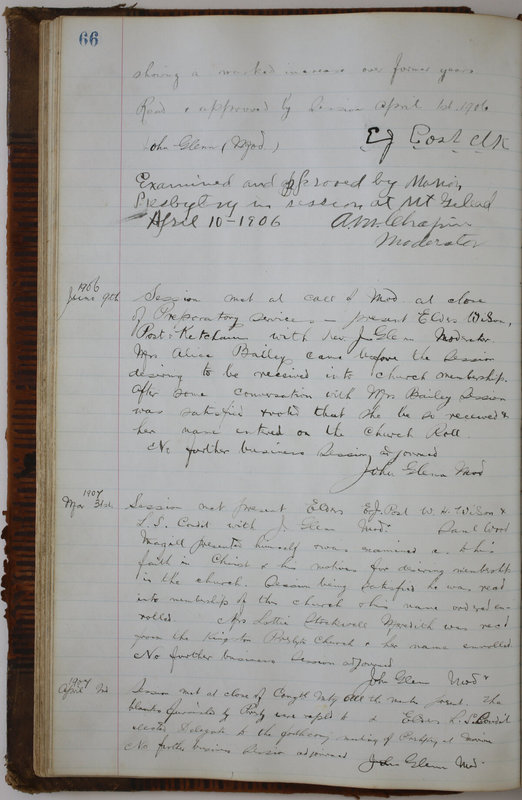 66
showing a marked increase over former years
Read & approved by Session April 1st 1906
John Glenn (Mod.)
EJ Post Clk
Examined and approved by Marion
Presbytery in session at Mt Gilead
April 10-1906
Moderator
1906
June 9th Session met at call of Mod at close
of Preparatory services - present Elders Wilson,
Post & Ketcham with Rev. J. Glenn Moderator.
Mrs Alice Bailey came before the Session
desiring to be received into church membership.
After some conversation with Mrs Bailey Session
was satisfied & voted that she be so received &
her name entered on the Church Roll.
No further business Session adjourned
John Glenn Mod
1907
Mar 31st Session met present Elders E.J. Post W. H. Wilson &
L. S. Condit with J. Glenn Mod.
presented himself & was examined as to his
faith in Christ & his motives for desiring membership
in the church. Session being satisfied he was recd
into membership of this church & his name ordered en-
rolled Mrs Lottie Stockwell Meredith was recd
from the Kingston Presbyt Church & her name enrolled
No further business Session adjourned
John Glenn Mod
1907
April Session met at close of Cong'l Mtg all the members present. The
blanks furnished by Presby were & Elder L. S. Condit
elected Delegate to the meeting of Presbytery at
No further business Session adjourned John Glenn Mod.